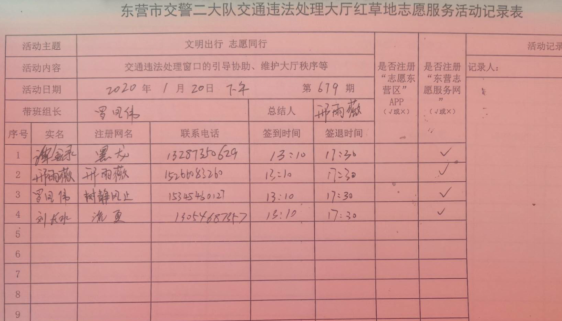 东营市交警二大队交通违法处理大厅红草地志愿服务活动记录表
活动主题 文明出行 志愿同行 是否注册“志愿东营区”APP（√或×） 是否注册“东营志愿服务网”（√或×） 活动记录
活动内容 交通违法处理窗口的引导协助、维护大厅秩序等 记录人：
活动日期 2020年1月20日下午 第679期
带班组长 罗思伟 总结人 邢雨薇
序号 实名 注册网名 联系电话 签到时间 签退时间
1 黑龙 13287350629 13:10 17:30 √
2 邢雨薇 邢雨薇 13:10 17:30 √
3 罗思伟 树静风止 15345460127 13:10 17:30 √
4 13:10 17:30 √
5
6
7
8
9